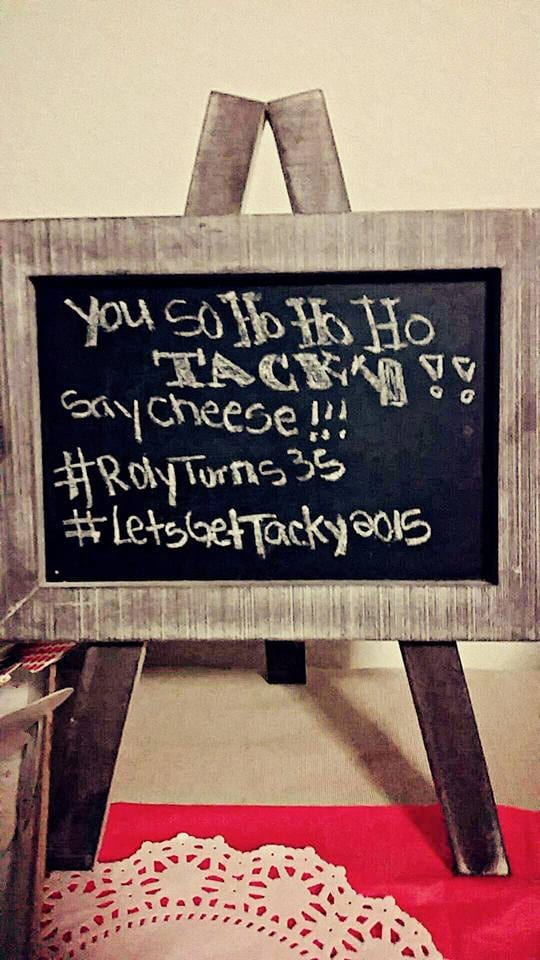 You So Ho Ho Ho
TACKY!!
Say cheese!!!
#RolyTurns35
#LetsGetTacky2015